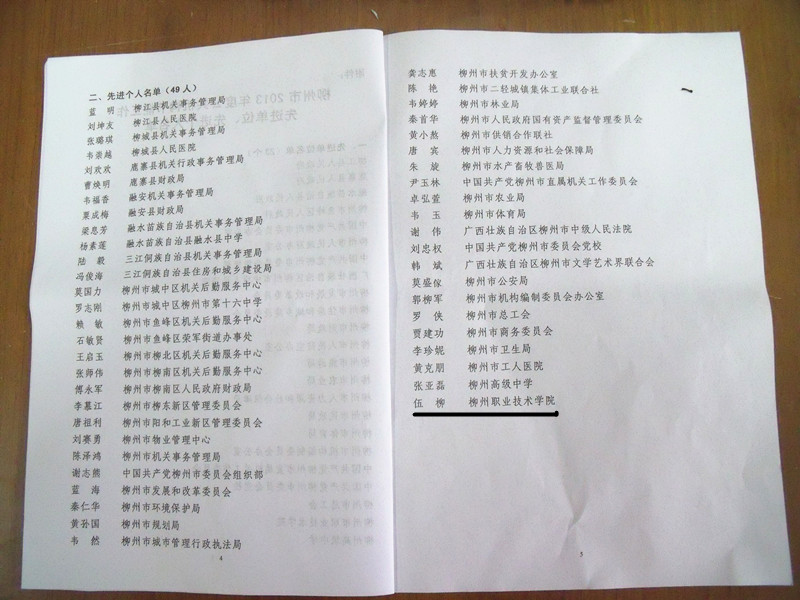 二、先进个人名单（49人）
蓝 明 柳江县机关事务管理局
刘坤友 柳江县人民医院
张璐琪 柳城县机关事务管理局
韦崇越 柳城县人民医院
刘欢欢 鹿寨县机关行政事务管理局
曹焕明 鹿寨县财政局
韦福香 融安机关事务管理局
粟成梅 融安县财政局
梁息芳 融水苗族自治县机关事务管理局
杨素莲 融水苗族自治县融水县中学
陆 毅 三江侗族自治县机关事务管理局
冯俊海 三江侗族自治县住房和城乡建设局
莫国力 柳州市城中区机关后勤服务中心
罗志刚 柳州市城中区柳州市第十六中学
赖 敏 柳州市鱼峰区机关后勤服务中心
石敏贤 柳州市鱼峰区荣军街道办事处
王启玉 柳州市柳北区机关后勤服务中心
张师伟 柳州市柳南区机关后勤服务中心
傅永军 柳州市柳南区人民政府财政局
李慕江 柳州市柳东新区管理委员会
唐祖利 柳州市阳和工业新区管理委员会
刘赛勇 柳州市物业管理中心
陈泽鸿 柳州市机关事务管理局
谢志熊 中国共产党柳州市委员会组织部
蓝 海 柳州市发展和改革委员会
秦仁华 柳州市环境保护局
黄孙国 柳州市规划局
韦 然 柳州市城市管理行政执法局
4
龚志惠 柳州市扶贫开发办公室
陈 艳 柳州市二轻城镇集体工业联合社
韦婷婷 柳州市林业局
秦首华 柳州市人民政府国有资产监督管理委员会
黄小熬 柳州市供销合作联社
唐 宾 柳州市人力资源和社会保障局
朱 旋 柳州市水产畜牧兽医局
尹玉林 中国共产党柳州市直属机关工作委员会
卓弘萱 柳州市农业局
韦 玉 柳州市体育局
谢 伟 广西壮族自治区柳州市中级人民法院
刘忠权 中国共产党柳州市委员会党校
韩 斌 广西壮族自治区柳州市文学艺术界联合会
莫盛傢 柳州市公安局
郭柳军 柳州市机构编制委员会办公室
罗 侠 柳州市总工会
贾建功 柳州市商务委员会
李珍妮 柳州市卫生局
黄克朋 柳州市工人医院
张亚磊 柳州高级中学
伍 柳 柳州职业技术学院
5